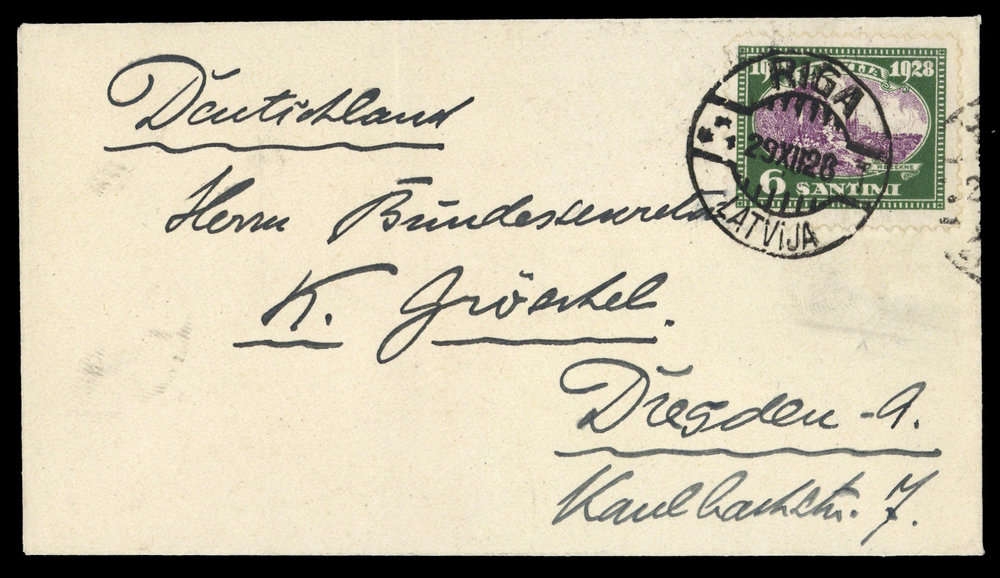 Deutschland
Herrn Bundessekretär
K. Gröschel.
Dresden-A.
Kaulbachstr. 7.
1928
6 SANTIMI
RIGA
29XII28
LATVIJA